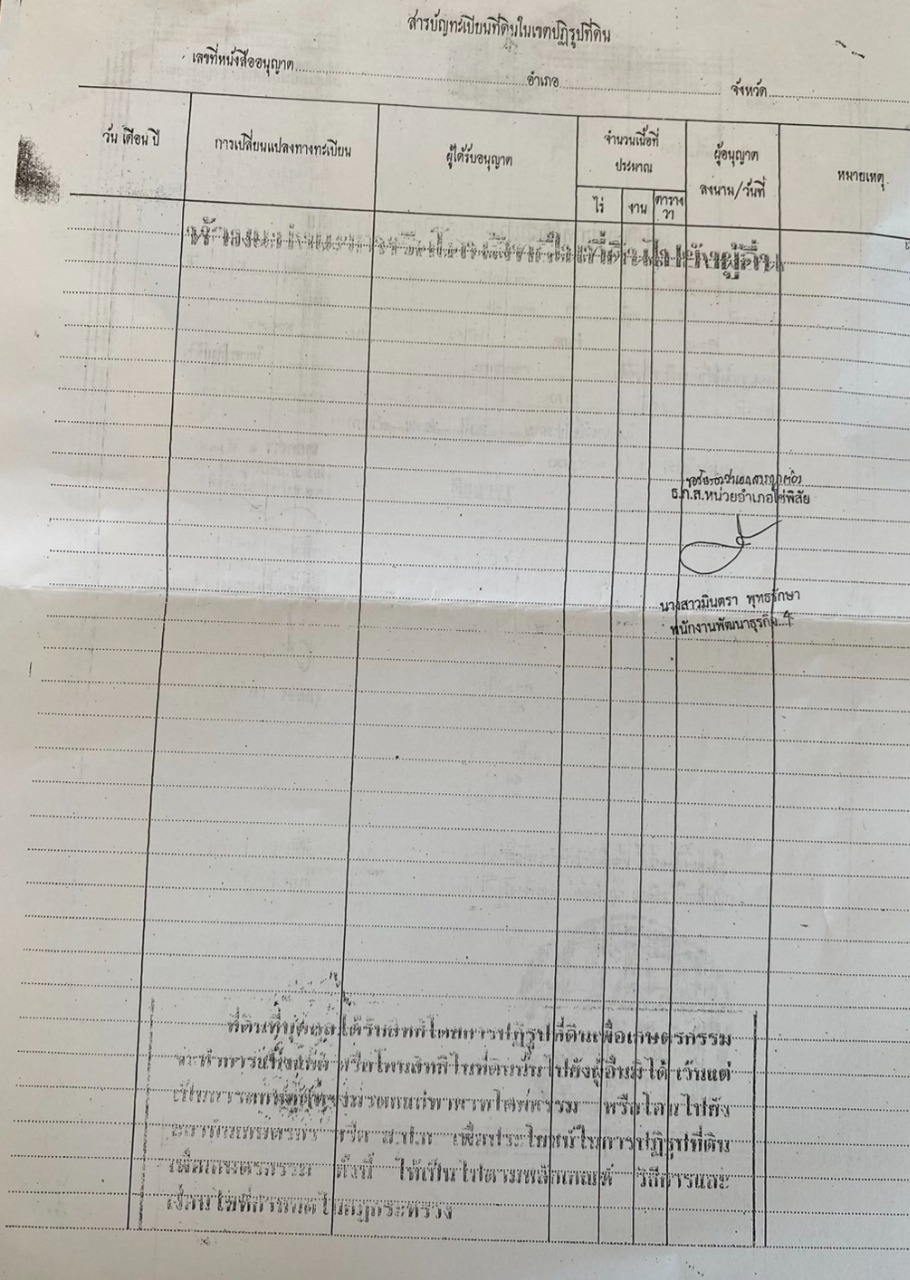 สารบัญทะเบียนที่ดินในเขตปฏิรูปที่ดิน
เลขที่หนังสืออนุญาต อำเภอ จังหวัด
วัน เดือน ปี
การเปลี่ยนแปลงทางทะเบียน
ผู้ได้รับอนุญาต
จำนวนเนื้อที่
ประมาณ
ไร่ งาน ตาราง
วา
ผู้อนุญาต
ลงนาม/วันที่
หมายเหตุ
ไปยังผู้อื่น
ธ.ก.ส.หน่วยอำเภอโซ่พิสัย
นางสาวมินตรา พุทธรักษา
พนักงานพัฒนาธุรกิจ 4
ที่ดินที่บุคคลได้รับสิทธิโดยการปฏิรูปที่ดินเพื่อเกษตรกรรม
จะทำการแบ่งแยก หรือโอนสิทธิในที่ดินนั้นไปยังผู้อื่นมิได้ เว้นแต่
เป็นการตกทอดทางมรดกแก่ทายาทโดยธรรม หรือโอนไปยัง
สถาบันเกษตรกร หรือ ส.ป.ก. เพื่อประโยชน์ในการปฏิรูปที่ดิน
เพื่อเกษตรกรรม ทั้งนี้ ให้เป็นไปตามหลักเกณฑ์ วิธีการและ
เงื่อนไขที่กำหนดในกฎกระทรวง